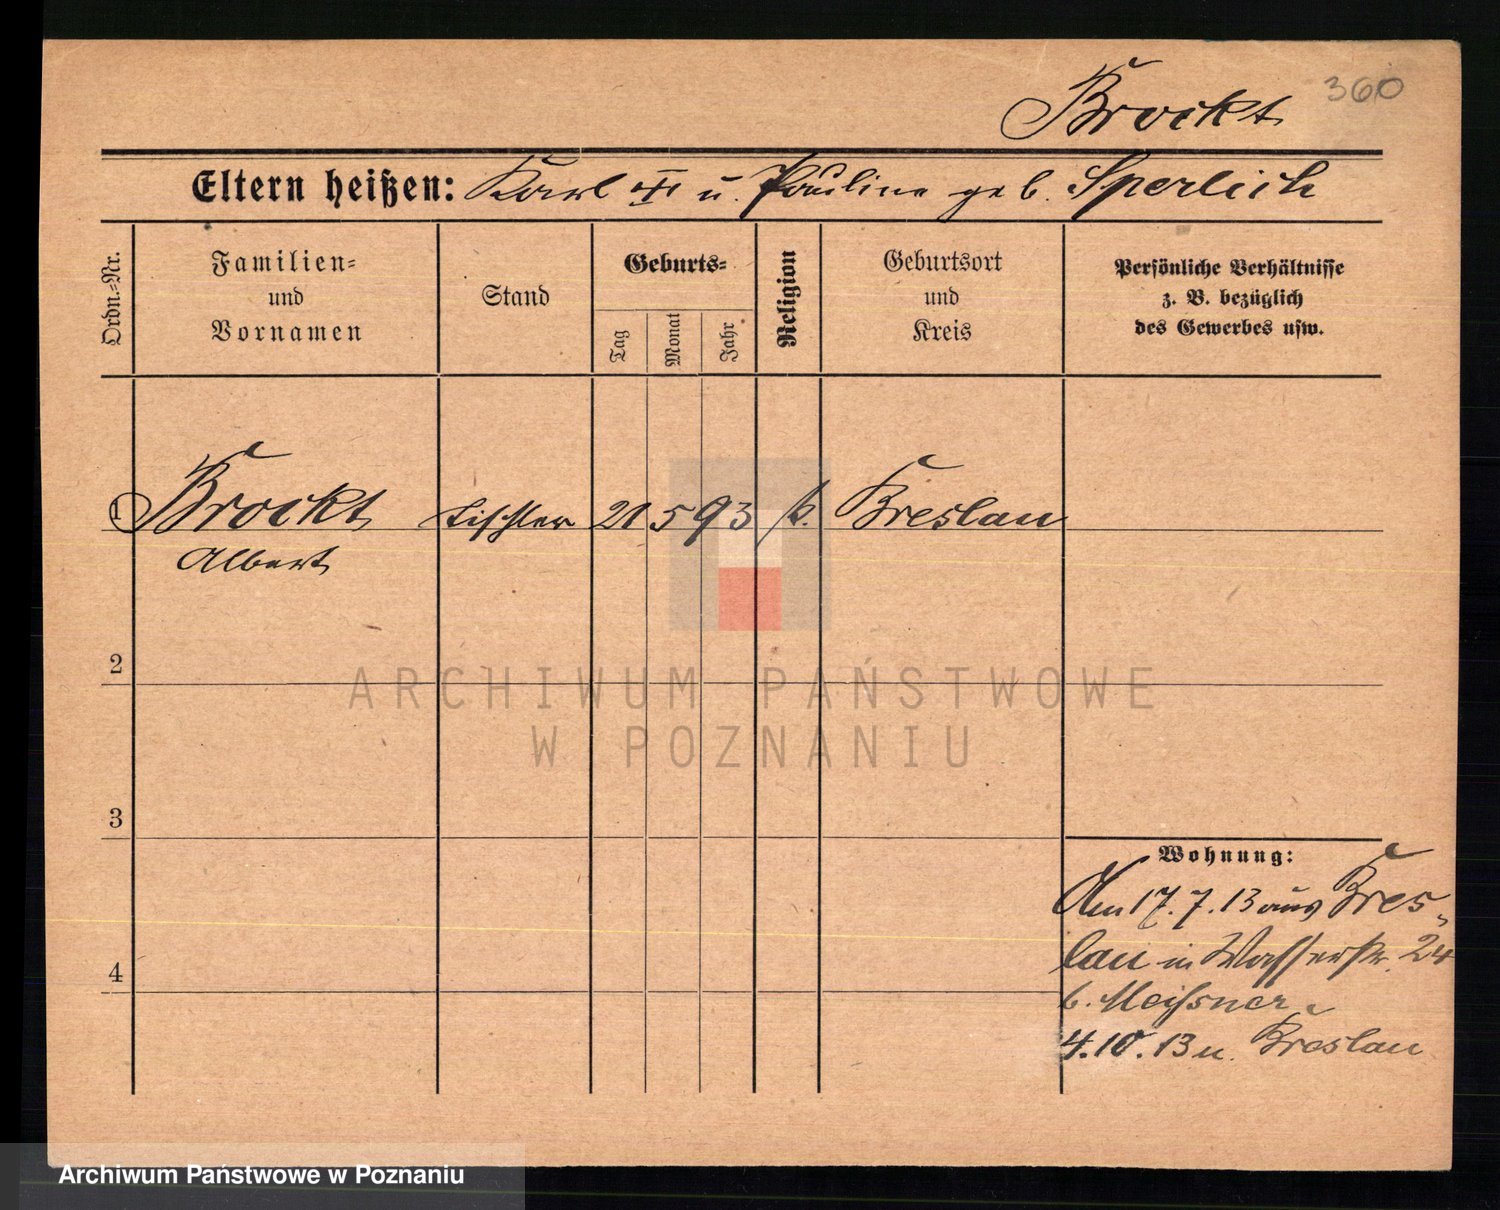 360
Brockt
Eltern heißen: Karl u. Pauline geb. Sperlich
Ordn.=Nr.
Familien=
und
Vornamen
Stand
Geburts=
Tag
Monat
Jahr
Religion
Geburtsort
und
Kreis
Persönliche Verhältnisse
z. B. bezüglich
des Gewerbes usw.
1 Brockt Tischler 21 5 93 k. Breslau
Albert
2
3
4
Wohnung:
Am 17.7.13 aus Bres-
lau in Wasserstr. 24
b. Meißner
4.10.13 n. Breslau
ARCHIWUM PAŃSTWOWE
W POZNANIU
Archiwum Państwowe w Poznaniu